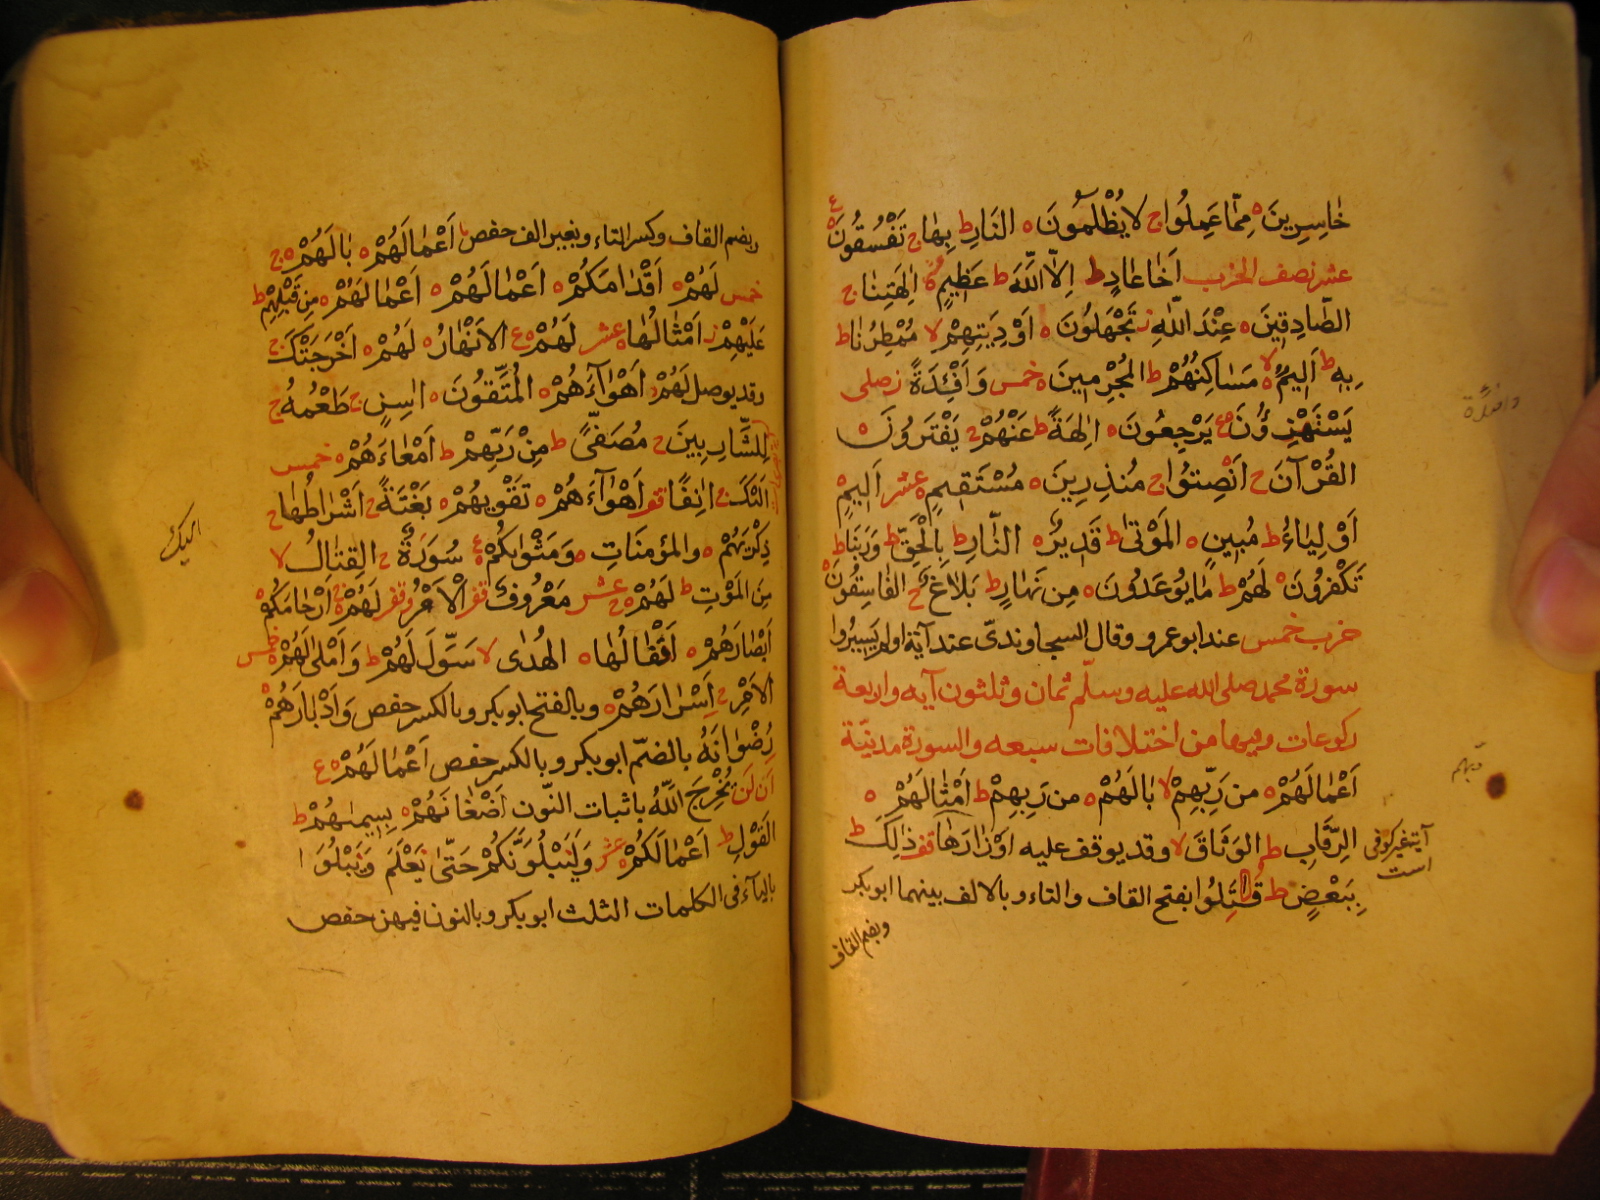 خَاسِرِينَ ه مِمَّا عَمِلُوا ج لَا يُظْلَمُونَ ه النَّارِ ط بِهَا ج تَفْسُقُونَ ه ع
عشر نصف الحزب اَخَا عَادٍ ط اِلَّا اللّٰهَ ط عَظِيمٍ ه اٰلِهَتِنَا ج
الصَّادِقِينَ ه عِنْدَ اللّٰهِ ز تَجْهَلُونَ ه اَوْدِيَتِهِمْ لا مُمْطِرُنَا ط
بِهِ ط اَلِيمٌ لا ه مَسَاكِنُهُمْ ط الْمُجْرِمِينَ ه خمس وَاَفْئِدَةً ز صلى
يَسْتَهْزِؤُنَ ه ع يَرْجِعُونَ ه اٰلِهَةً ط عَنْهُمْ ج يَفْتَرُونَ ه
الْقُرْآنَ ج اَنْصِتُوا ج مُنْذِرِينَ ه مُسْتَقِيمٍ ه عشر اَلِيمٍ ه
اَوْلِيَاءُ ط مُبِينٍ ه الْمَوْتٰى ط قَدِيرٌ ه النَّارِ ط بِالْحَقِّ ط وَرَبِّنَا ط
تَكْفُرُونَ ه لَهُمْ ط مَا يُوعَدُونَ ه مِنْ نَهَارٍ ط بَلَاغٌ ج الْفَاسِقُونَ ه
حزب خمس عند ابوعمرو وقال السجاوندىّ عند آية اولم يَسِيرُوا
سورة محمد صلى الله عليه وسلّم ثمان وثلثون آيه واربعة
ركوعات وفيها من اختلافات سبعه والسورة مدنيّة
اَعْمَالَهُمْ ه من رَبِّهِمْ لا بَالَهُمْ ه من رَبِّهِمْ ط اَمْثَالَهُمْ ه
الرِّقَابِ ط الْوَثَاقَ لا وقد يوقف عليه اَوْزَارَهَا قف ذٰلِكَ ط
بِبَعْضٍ ط قَاتَلُوا بفتح القاف والتاء وبالالف بينهما ابوبكر
وبضم القاف
آيت غير كوفى
است
وبضم القاف وكسر التاء وبغير الف حفص اَعْمَالَهُمْ ه بَالَهُمْ ه ج
خمس لَهُمْ ه اَقْدَامَكُمْ ه اَعْمَالَهُمْ ه اَعْمَالَهُمْ ه مِنْ قَبْلِهِمْ ط
عَلَيْهِمْ ز اَمْثَالُهَا ه عشر لَهُمْ ه ع الْاَنْهَارُ ط لَهُمْ ه اَخْرَجَتْكَ ج
وقد يوصل لَهُمْ ه اَهْوَآءَهُمْ ه الْمُتَّقُونَ ط اٰسِنٍ ج طَعْمُهُ ج
لِلشَّارِبِينَ ج مُصَفًّى ط مِنْ رَبِّهِمْ ط اَمْعَاءَهُمْ ه خمس
اِلَيْكَ ج اٰنِفًا قف اَهْوَآءَهُمْ ه تَقْوٰيهُمْ ه بَغْتَةً ج اَشْرَاطُهَا ج
ذِكْرٰيهُمْ ه والمؤمنَاتِ ط وَمَثْوٰيكُمْ ه ع سُورَةٌ ج الْقِتَالُ لا
مِنَ الْمَوْتِ ط لَهُمْ ه ج عشر مَعْرُوفٌ قف الْاَمْرُ قف لَهُمْ ه ج اَرْحَامَكُمْ ه
اَبْصَارَهُمْ ه اَقْفَالُهَا ه الْهُدٰى لا سَوَّلَ لَهُمْ ط وَاَمْلٰى لَهُمْ ه خمس
الْاَمْرِ ج اَسْرَارَهُمْ ه وبالفتح ابوبكر وبالكسر حفص وَاَدْبَارَهُمْ ه
رُضْوَانَهُ بالضمّ ابوبكر وبالكسر حفص اَعْمَالَهُمْ ه ع
اَنْ لَنْ يُخْرِجَ اللّٰهُ باثبات النّون اَضْغَانَهُمْ ه بِسِيمٰىهُمْ ط
الْقَوْلِ ط اَعْمَالَكُمْ ه عشر وَلَيَبْلُوَنَّكُمْ حَتّٰى يَعْلَمَ وَيَبْلُوَا
باليآء فى الكلمات الثلث ابوبكر وبالنون فيهن حفص
اليك